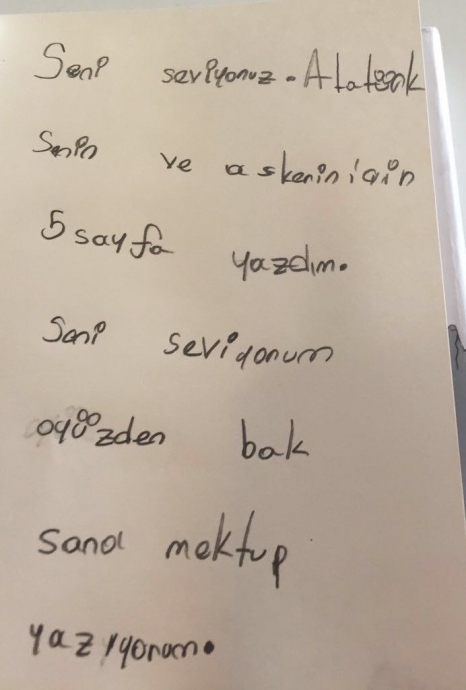 Seni seviyoruz. Atatürk
Senin ve askerin için
5 sayfa yazdım.
Seni seviyorum
oyüzden bak
sana mektup
yazıyorum.